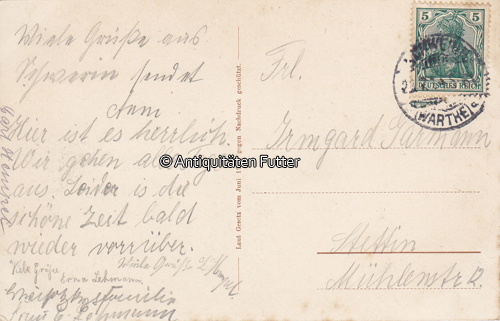 Viele Grüße aus
Schwerin sendet
Hier ist es herrlich.
Wir gehen
aus. Leider is die
schöne Zeit bald
wieder vorrüber.
Viele Grüße
Erna Lehmann
Viele Grüße
Lehmann
Laut Gesetz vom Juni gegen Nachdruck geschützt.
© Antiquitäten Futter
5
DEUTSCHES REICH
(WARTHE)
Frl.
Irmgard Sarmann
Stettin
Mühlenstr